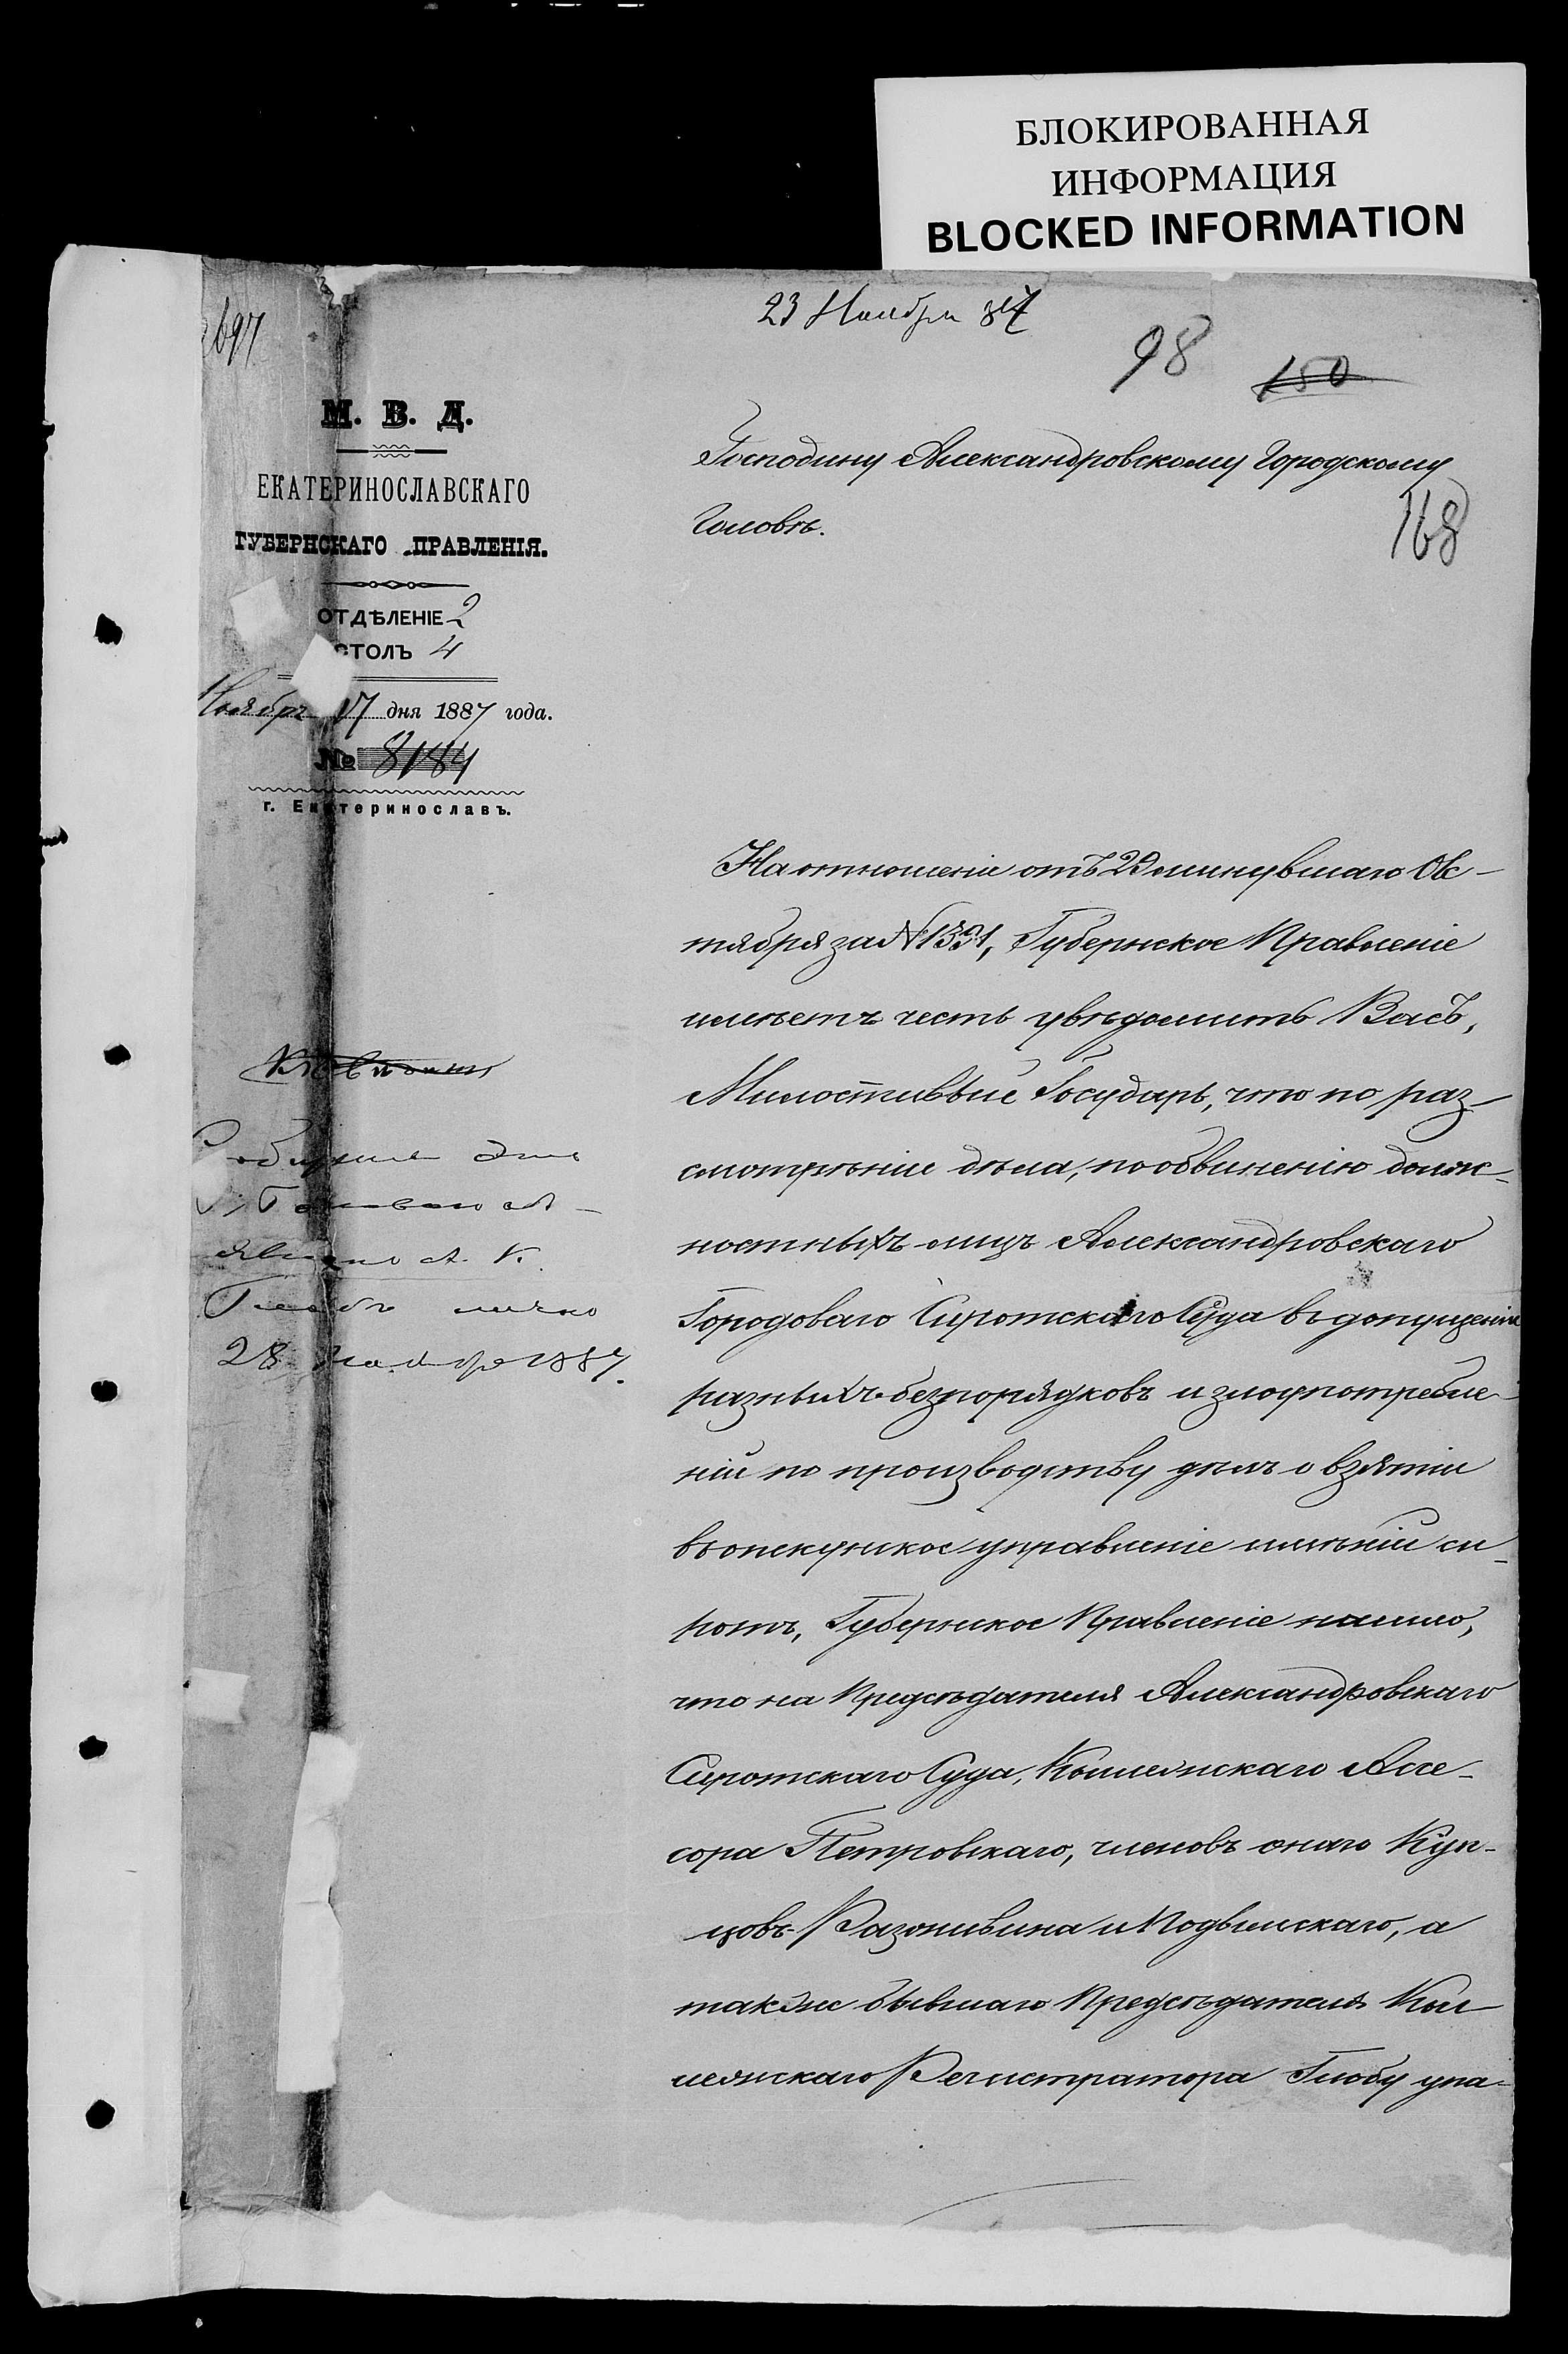 БЛОКИРОВАННАЯ
ИНФОРМАЦИЯ
BLOCKED INFORMATION
697
23 Ноября 87
98
150
М. В. Д.
ЕКАТЕРИНОСЛАВСКАГО
ГУБЕРНСКАГО ПРАВЛЕНІЯ.
ОТДѢЛЕНІЕ 2
СТОЛЪ 4
Ноября 17 дня 1887 года.
№ 8184
г. Екатеринославъ.
Господину Александровскому Городскому
Головѣ.
168
На отношеніе отъ 29 минувшаго Ок-
тября за №1391, Губернское Правленіе
имѣетъ честь увѣдомить Васъ,
Милостивый Государь, что по раз-
смотрѣніи дѣла, по обвиненію долж-
ностныхъ лицъ Александровскаго
Городоваго Сиротскаго Суда въ допущеніи
разныхъ безпорядковъ и злоупотребле-
ній по производству дѣлъ о взятіи
въ опекунское управленіе имѣній си-
ротъ, Губернское Правленіе нашло,
что на Предсѣдателя Александровскаго
Сиротскаго Суда, Коллежскаго Ассе-
сора Петровскаго, членовъ онаго Куп-
цовъ и Подвысскаго, а
также бывшаго Предсѣдателя Кол-
лежскаго Регистратора Глобу упа-
явлено А. К.
Глобъ лично
28 Ноября 1887.